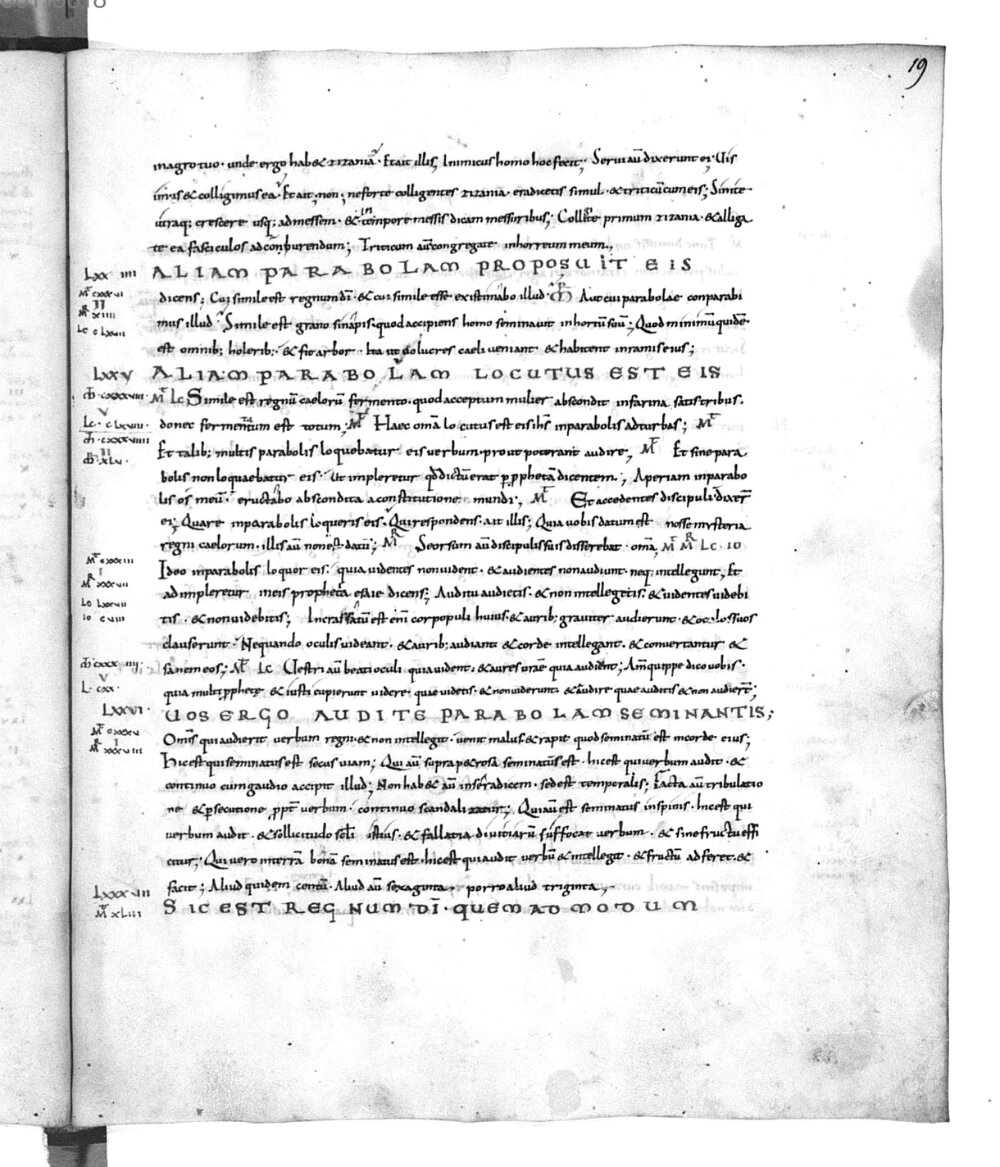 19
in agro tuo · unde ergo hab& zizania · Et ait illis; Inimicus homo hoc fecit; Serui aū dixerunt ei; Uis
imus & colligimus ea · Et ait; non; ne forte colligentes zizania · eradicetis simul · & triticū cum eis; Sinite
utraq; crescere usq; ad messem · & in tempore messis dicam messoribus; Collegite primum zizania · & alliga
te ea fasciculos ad conburendum; Triticum aū congregate in horreum meum;
LXX IIII ALIAM PARABOLAM PROPOSUIT EIS
dicens; Cui simile est regnum dī · & cui simile esse existimabo illud · Aut cui parabolae conparabi
mus illud · Simile est grano sinapis · quod accipiens homo seminauit in hortū suū; Quod minimū quidē
est omnib; holerib; · & fit arbor · Ita ut uolucres caeli ueniant & habitent in ramis eius;
LXXV ALIAM PARABOLAM LOCUTUS EST EIS
Simile est regnū caelorū fermento · quod acceptum mulier abscondit in farina satis tribus ·
donec fermentatum est totum · Haec omā locutus est eis ihs in parabolis ad turbas;
Et talib; multis parabolis loquebatur eis uerbum · prout poterant audire, Et sine para
bolis non loquaebatur eis · Ut impleretur qđ dictū erat p prophetā dicentem, Aperiam in parabo
lis os meū · eructabo abscondita a constitutione mundi, Et accedentes discipuli dixer̄
ei; Quare in parabolis loqueris eis · Qui respondens · ait illis; Quia uobis datum est nosse mysteria
regni caelorum · illis aū non est datū; Seorsum aū discipulis suis disserebat · omā,
Ideo in parabolis loquor eis · quia uidentes non uident · & audientes non audiunt · neq; intellegunt, Et
adimpleretur in eis prophetia esaie dicens; Auditu audietis · & non intellegetis · & uidentes uidebi
tis · & non uidebitis; Incrassatū est enī cor populi huius · & aurib; grauiter audierunt · & oculos suos
clauserunt · Nequando oculis uideant · & aurib; audiant · & corde intellegant · & conuertantur &
sanem eos; Uestri aū beati oculi quia uident · & aures urāe quia audient; Am̄ quippe dico uobis ·
quia multi pphetę & iusti cupierunt uidere · quae uidetis · & non uiderunt & audire quae auditis & non audier̄t;
LXXVI · UOS ERGO AUDITE PARABOLAM SEMINANTIS;
Omīs qui audierit uerbum regni & non intellegit · uenit malus & rapit quod seminatū est in corde eius;
hic est qui seminatus est secus uiam; Qui aū supra petrosa seminatus est · hic est qui uerbum audit · &
continuo cum gaudio accipit illud; Non hab& aū in se radicem · sed est temporalis; Facta aū tribulatio
ne & psecutione ppt̄ uerbum · continuo scandalizatur; Qui aū est seminatus in spinis · hic est qui
uerbum audit · & sollicitudo sc̄li istius · & fallatia diuitiarū suffocat uerbum · & sine fructu effi
citur; Qui uero in terrā bonā seminatus est · hic est qui audit uerbū & intellegit · & fructū adferet · &
facit; Aliud quidem centū · Aliud aū sexaginta · porro aliud triginta,
SIC EST REGNUM DĪ · QUEMADMODUM